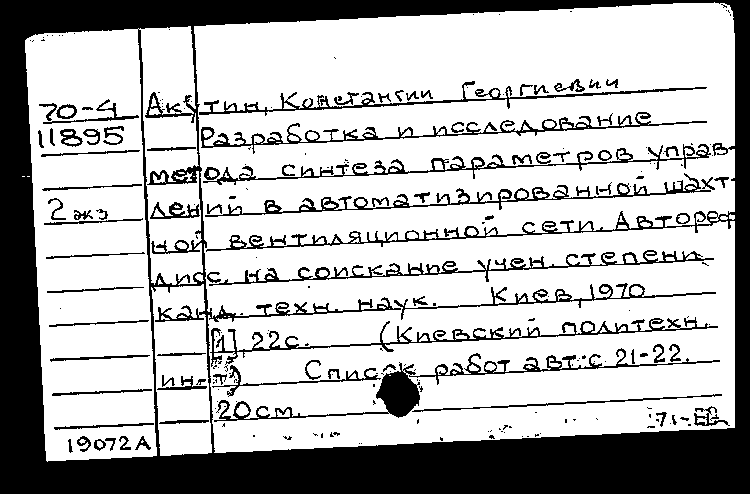 70-4 Акутин, Константин Георгиевич
11895 Разработка и исследование
метода синтеза параметров управ-
2 экз лений в автоматизированной шахт-
ной вентиляционной сети. Автореф
дисс. на соискание учен. степени
канд. техн. наук. Киев, 1970
[1], 22с. (Киевский политехн.
ин-т) Список работ авт.: с 21-22.
20см.
19072А